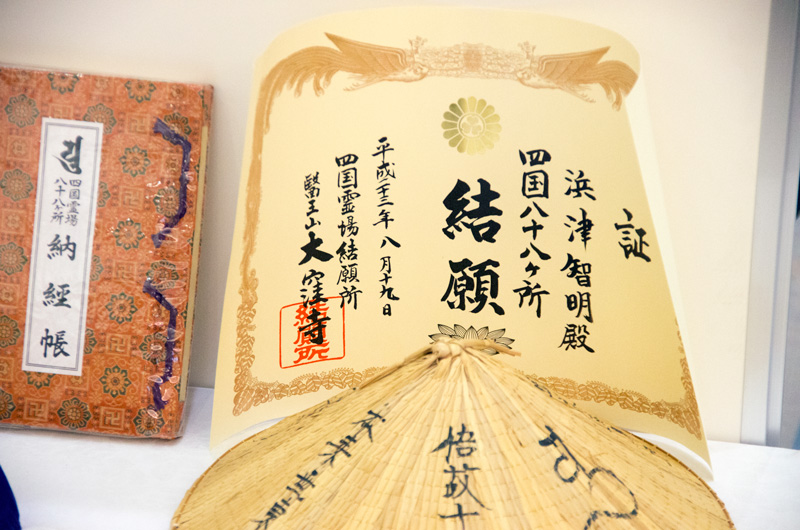 四国霊場
八十八ヶ所
納経帳
証
浜津智明殿
四国八十八ヶ所
結願
平成二十三年八月十九日
四国霊場結願所
醫王山大窪寺
悟故十